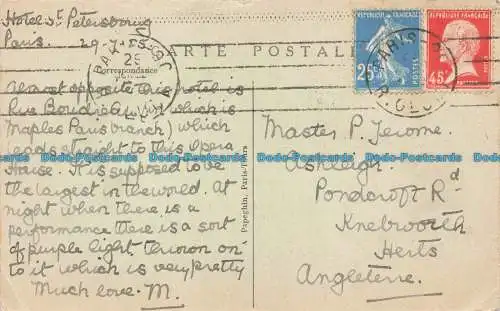 Hotel St Petersbourg
Paris.
CARTE POSTALE
Correspondance
Almost opposite this hotel is
Rue Boudreau (in which is
Maples Paris branch) which
leads straight to this Opera
House. It is supposed to be
the largest in the world. At
night when there is a
performance there is a sort
of purple light thrown on
to it which is very pretty
Much love. M.
Papeghin, Paris-Tours
REPUBLIQUE FRANÇAISE
25c
POSTES
REPUBLIQUE FRANÇAISE
45c
PARIS
R. GLUCK
25
Master P. Jerome.
Ashleigh.
Pondcroft Rd
Knebworth
Herts
Angleterre.
Dodo-Postcards Dodo-Postcards Dodo-Postcards Dodo-Postcards